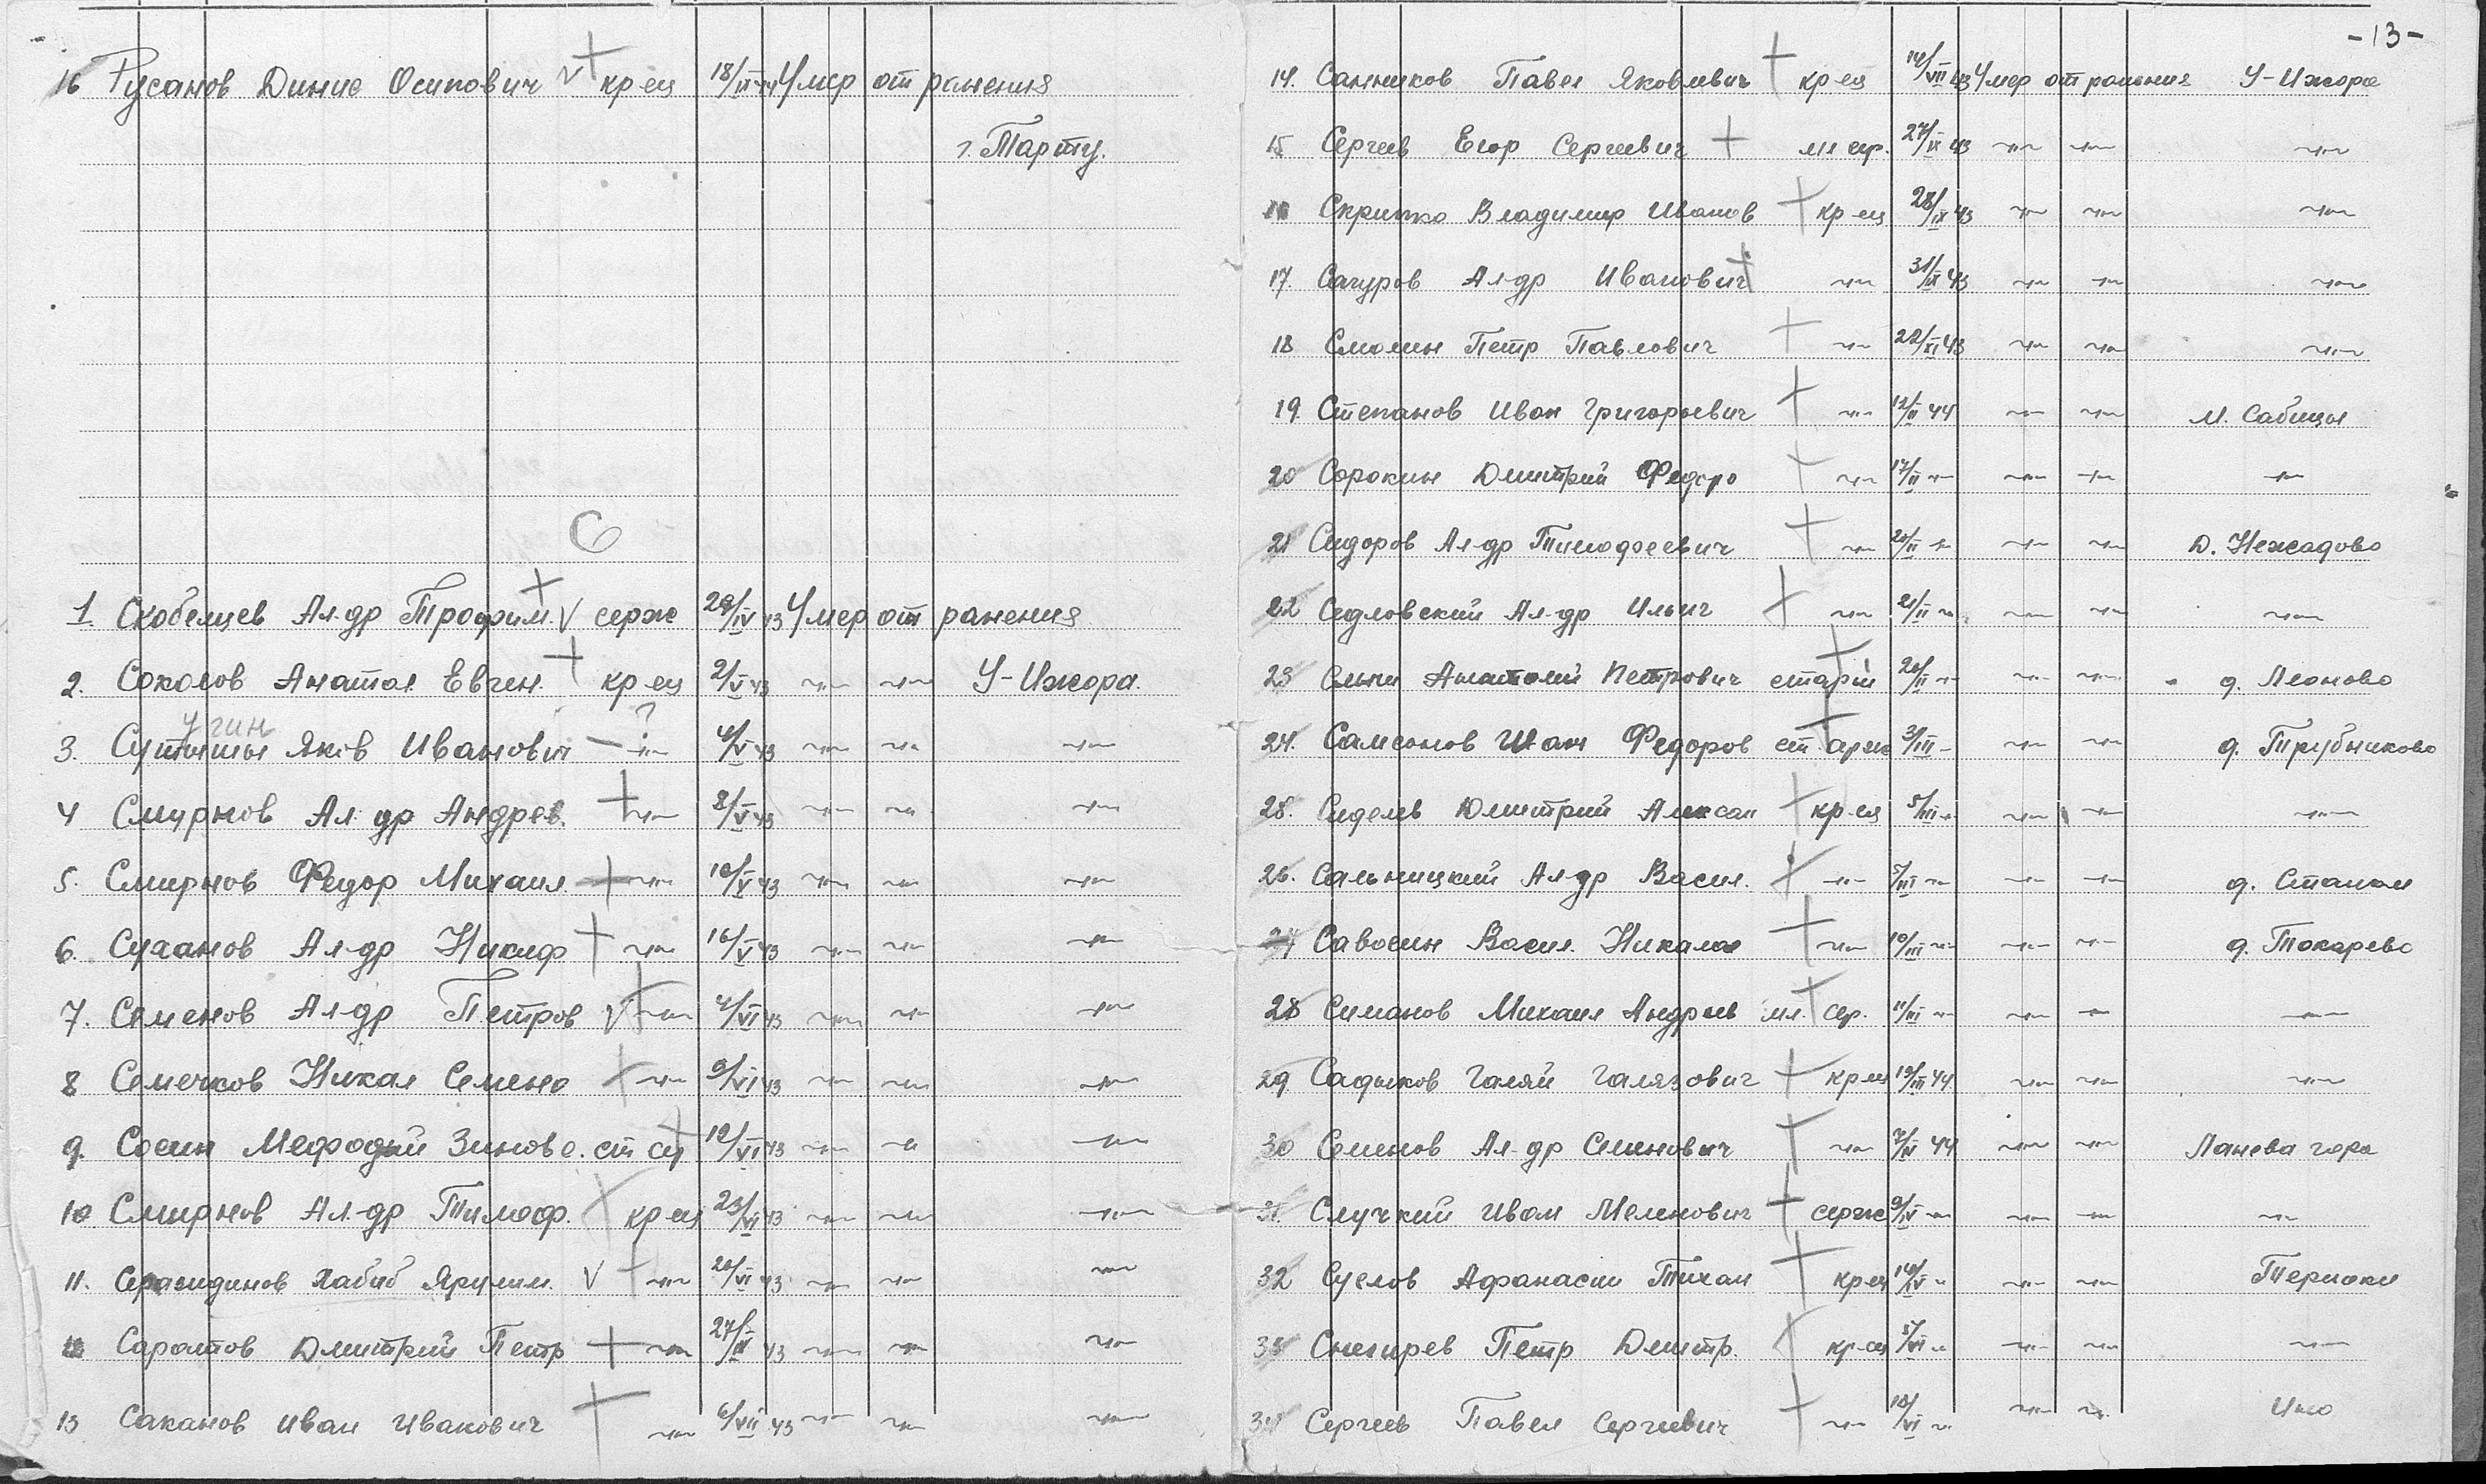 16 Русанов Динис Осипович v + кр-ец 18/IX 44 Умер от ранения
г. Тарту.
С
1 Скобелцев Ал-др Трофим. + v серж 29/IV 43 Умер от ранения
2. Соколов Анатол Евген. + кр-ец 2/V 43 У-Ижора.
угин ?
3. Яков Иванович 4/V 43
4 Смирнов Ал-др Андрев. + 8/V 43
5. Смирнов Федор Михаил + 10/V 43
6. Суханов Ал-др Никиф + 16/V 43
7. Семенов Ал-др Петров v + 4/VI 43
8 Семечков Никал Семено + 9/VI 43
9. Сосин Мефодий Зиново. ст + 12/VI 43
10 Смирнов Ал-др Тимоф. + кр-ец 23/VI 43
11. Хабиб Ярулим. v + 20/VI 43
12 Саратов Дмитрий Петр + 27/ 43
13 Саканов Иван Иванович + 6/VII 43
-13-
14. Санников Павел Яковлевич + кр-ец 14/VII 43 Умер от ранения У-Ижора
15 Сергеев Егор Сергеевич + мл сер. 27/IX 43
16 Скрипко Владимир Иванов + кр-ец 28/IX 43
17. Сагуров Ал-др Иванович + 31/IX 43
18 Смолин Петр Павлович + 22/XI 43
19. Степанов Иван Григорьевич + 12/II 44 М. Сабицы
20 Сорокин Дмитрий Федоро + 17/II
21 Сидоров Ал-др Тимофеевич + 20/II Д. Нежадово
22 Седловский Ал-др Ильич + 21/II
23 Анатолий Петрович + 20/II д. Леоново
24. Самсонов Иван Федоров + ст. 3/III д. Трубниково
25. Сиделев Дмитрий Алексан + кр-ец 5/III
26. Сальницкий Ал-др Васил. + 7/III д.
27 Савосин Васил. Никалае + 10/III д. Токарево
28 Симанов Михаил Андреев мл. + сер. 11/III
29. Садыков Галяй Галязович + кр-ец 19/III 44
30 Семенов Ал-др Семенович + 7/IV 44 Ланева гора
31. Слуцкий Иван Меленович + серж 9/IV
32 Суслов Афанасии Тихан + кр-ец 14/IV
33 Снегирев Петр Дмитр. + кр-ец /VI
34 Сергеев Павел Сергеевич + 18/VI